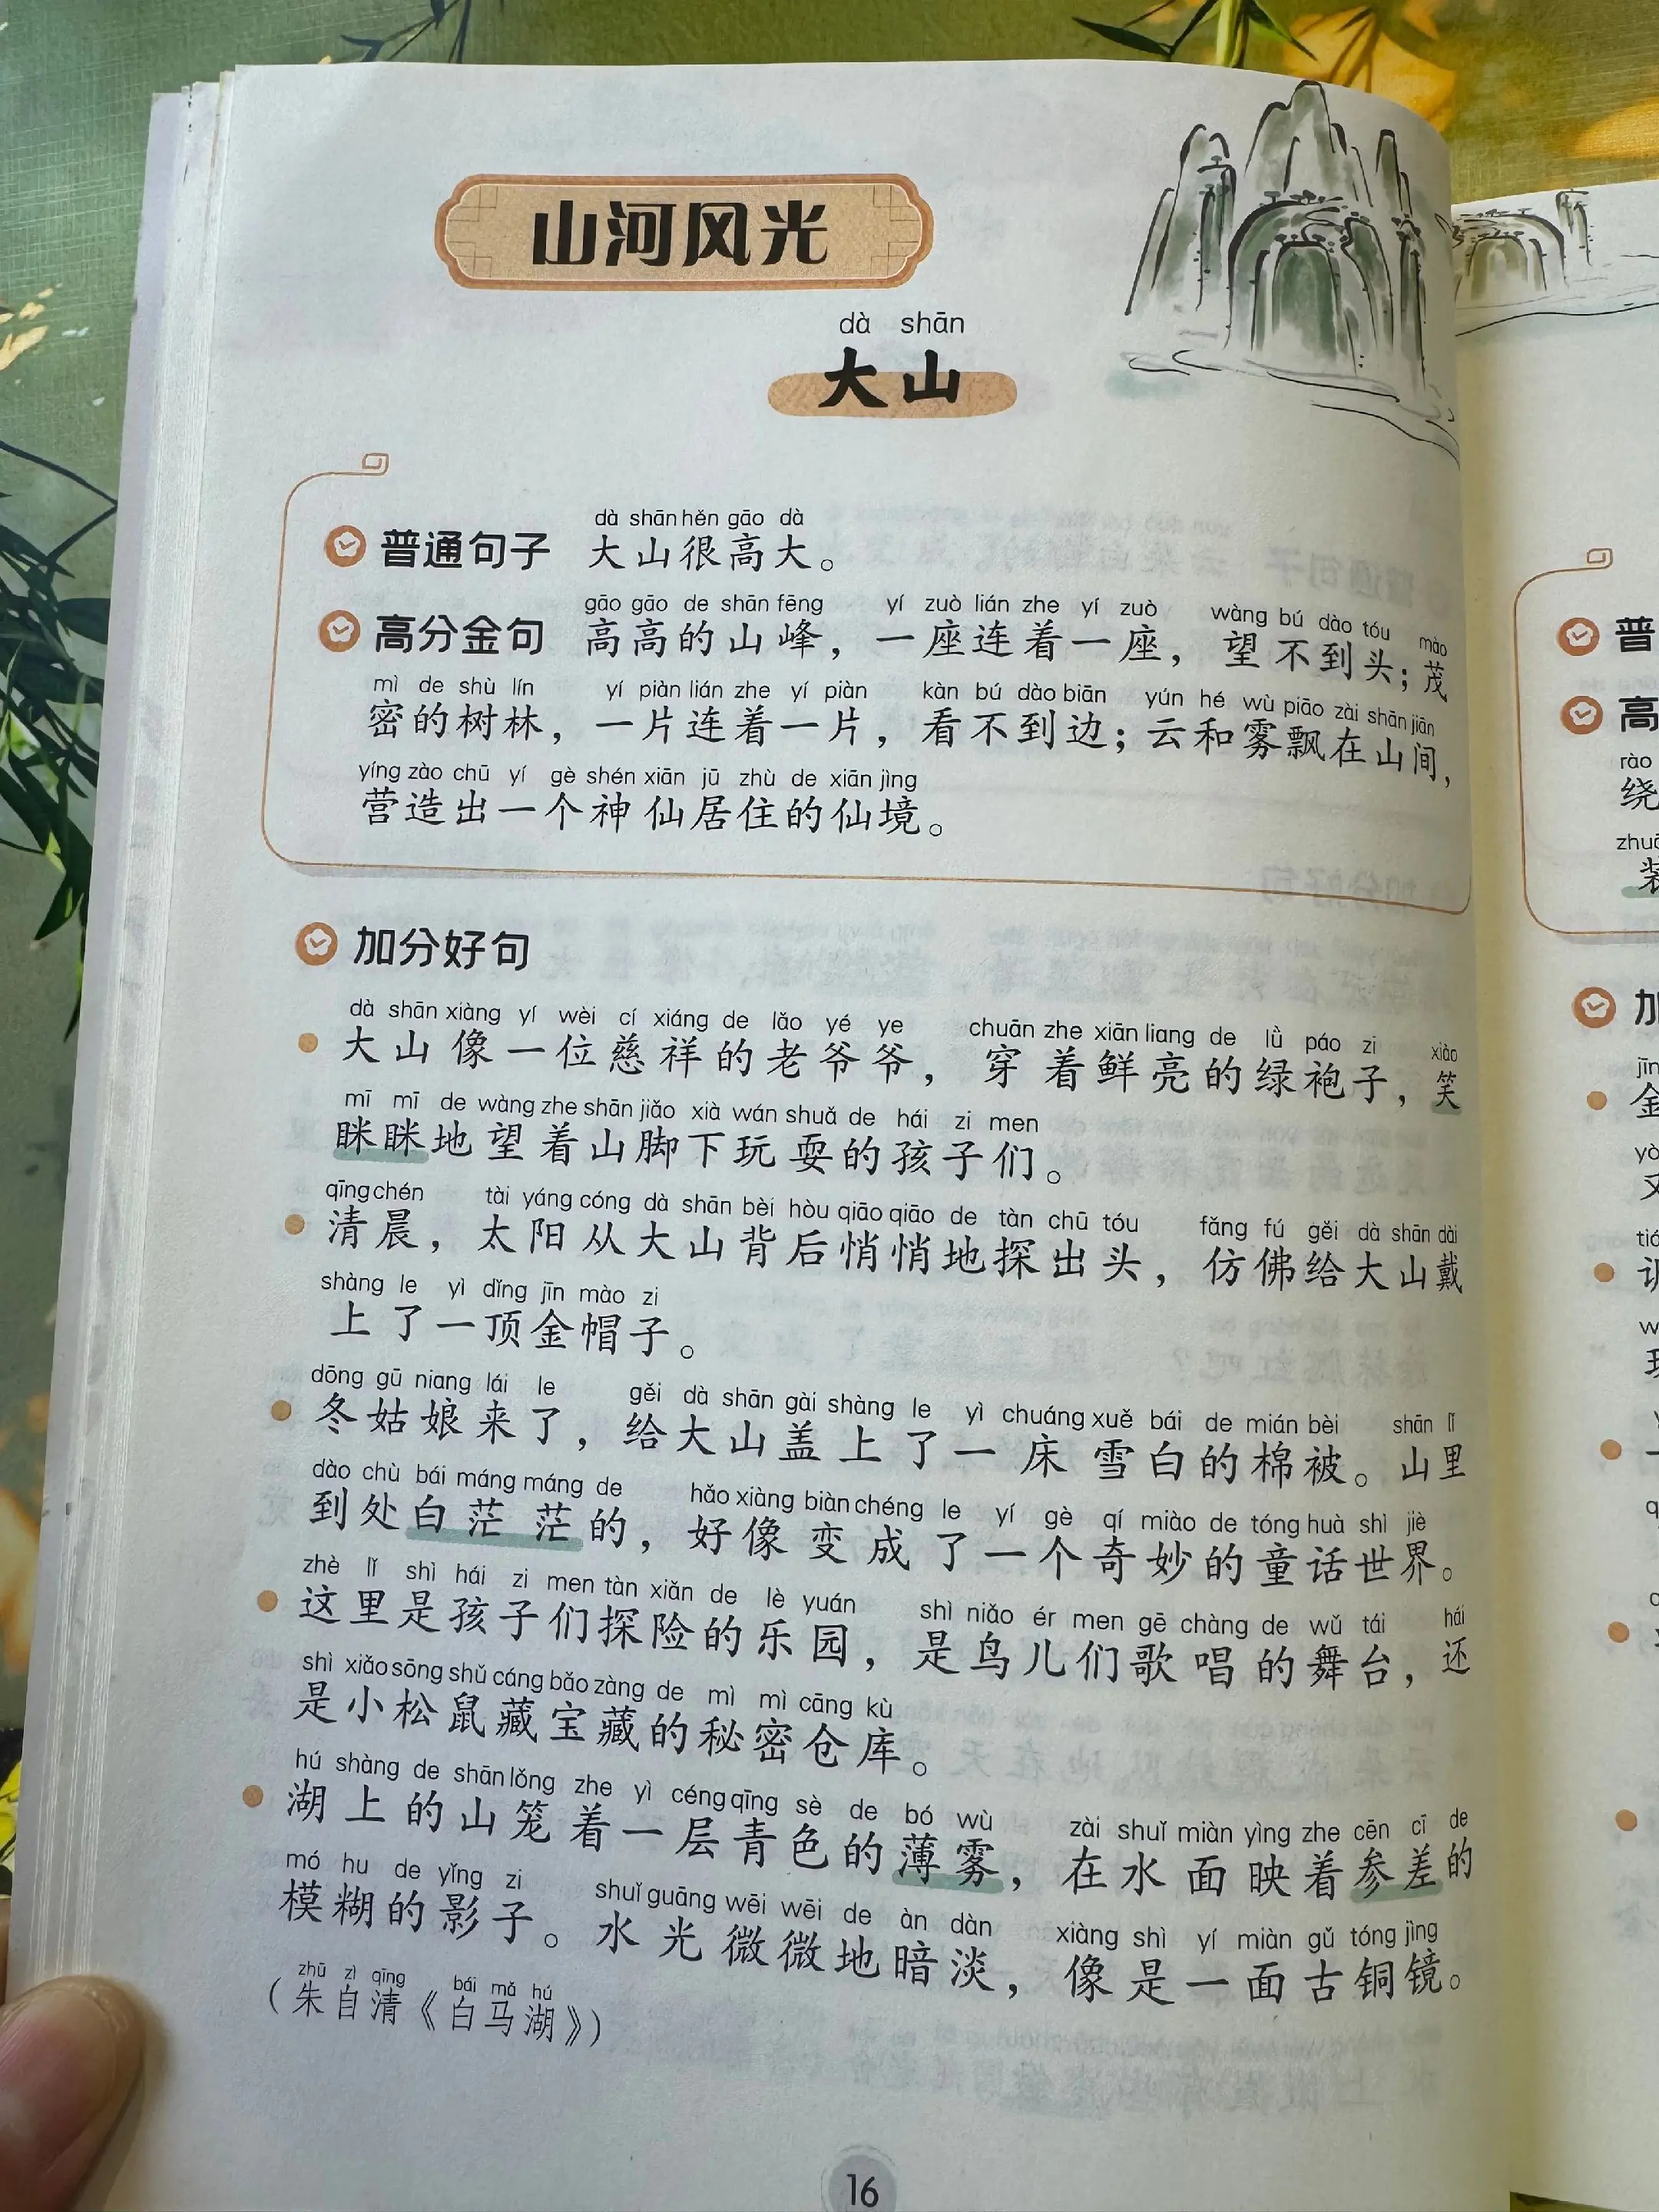 山河风光
dà shān
大山
dà shān hěn gāo dà
普通句子 大山很高大。
gāo gāo de shān fēng yí zuò lián zhe yí zuò wàng bú dào tóu mào
高分金句 高高的山峰，一座连着一座，望不到头；茂
mì de shù lín yí piàn lián zhe yí piàn kàn bú dào biān yún hé wù piāo zài shān jiān
密的树林，一片连着一片，看不到边；云和雾飘在山间，
yíng zào chū yí gè shén xiān jū zhù de xiān jìng
营造出一个神仙居住的仙境。
加分好句
dà shān xiàng yí wèi cí xiáng de lǎo yé ye chuān zhe xiān liang de lǜ páo zi xiào
大山像一位慈祥的老爷爷，穿着鲜亮的绿袍子，笑
mī mī de wàng zhe shān jiǎo xià wán shuǎ de hái zi men
眯眯地望着山脚下玩耍的孩子们。
qīng chén tài yáng cóng dà shān bèi hòu qiāo qiāo de tàn chū tóu fǎng fú gěi dà shān dài
清晨，太阳从大山背后悄悄地探出头，仿佛给大山戴
shàng le yì dǐng jīn mào zi
上了一顶金帽子。
dōng gū niang lái le gěi dà shān gài shàng le yì chuáng xuě bái de mián bèi shān lǐ
冬姑娘来了，给大山盖上了一床雪白的棉被。山里
dào chù bái máng máng de hǎo xiàng biàn chéng le yí gè qí miào de tóng huà shì jiè
到处白茫茫的，好像变成了一个奇妙的童话世界。
zhè lǐ shì hái zi men tàn xiǎn de lè yuán shì niǎo ér men gē chàng de wǔ tái hái
这里是孩子们探险的乐园，是鸟儿们歌唱的舞台，还
shì xiǎo sōng shǔ cáng bǎo zàng de mì mì cāng kù
是小松鼠藏宝藏的秘密仓库。
hú shàng de shān lǒng zhe yì céng qīng sè de bó wù zài shuǐ miàn yìng zhe cēn cī de
湖上的山笼着一层青色的薄雾，在水面映着参差的
mó hu de yǐng zi shuǐ guāng wēi wēi de àn dàn xiàng shì yí miàn gǔ tóng jìng
模糊的影子。水光微微地暗淡，像是一面古铜镜。
zhū zì qīng bái mǎ hú
（朱自清《白马湖》）
16
普
高
rào
绕
加
金